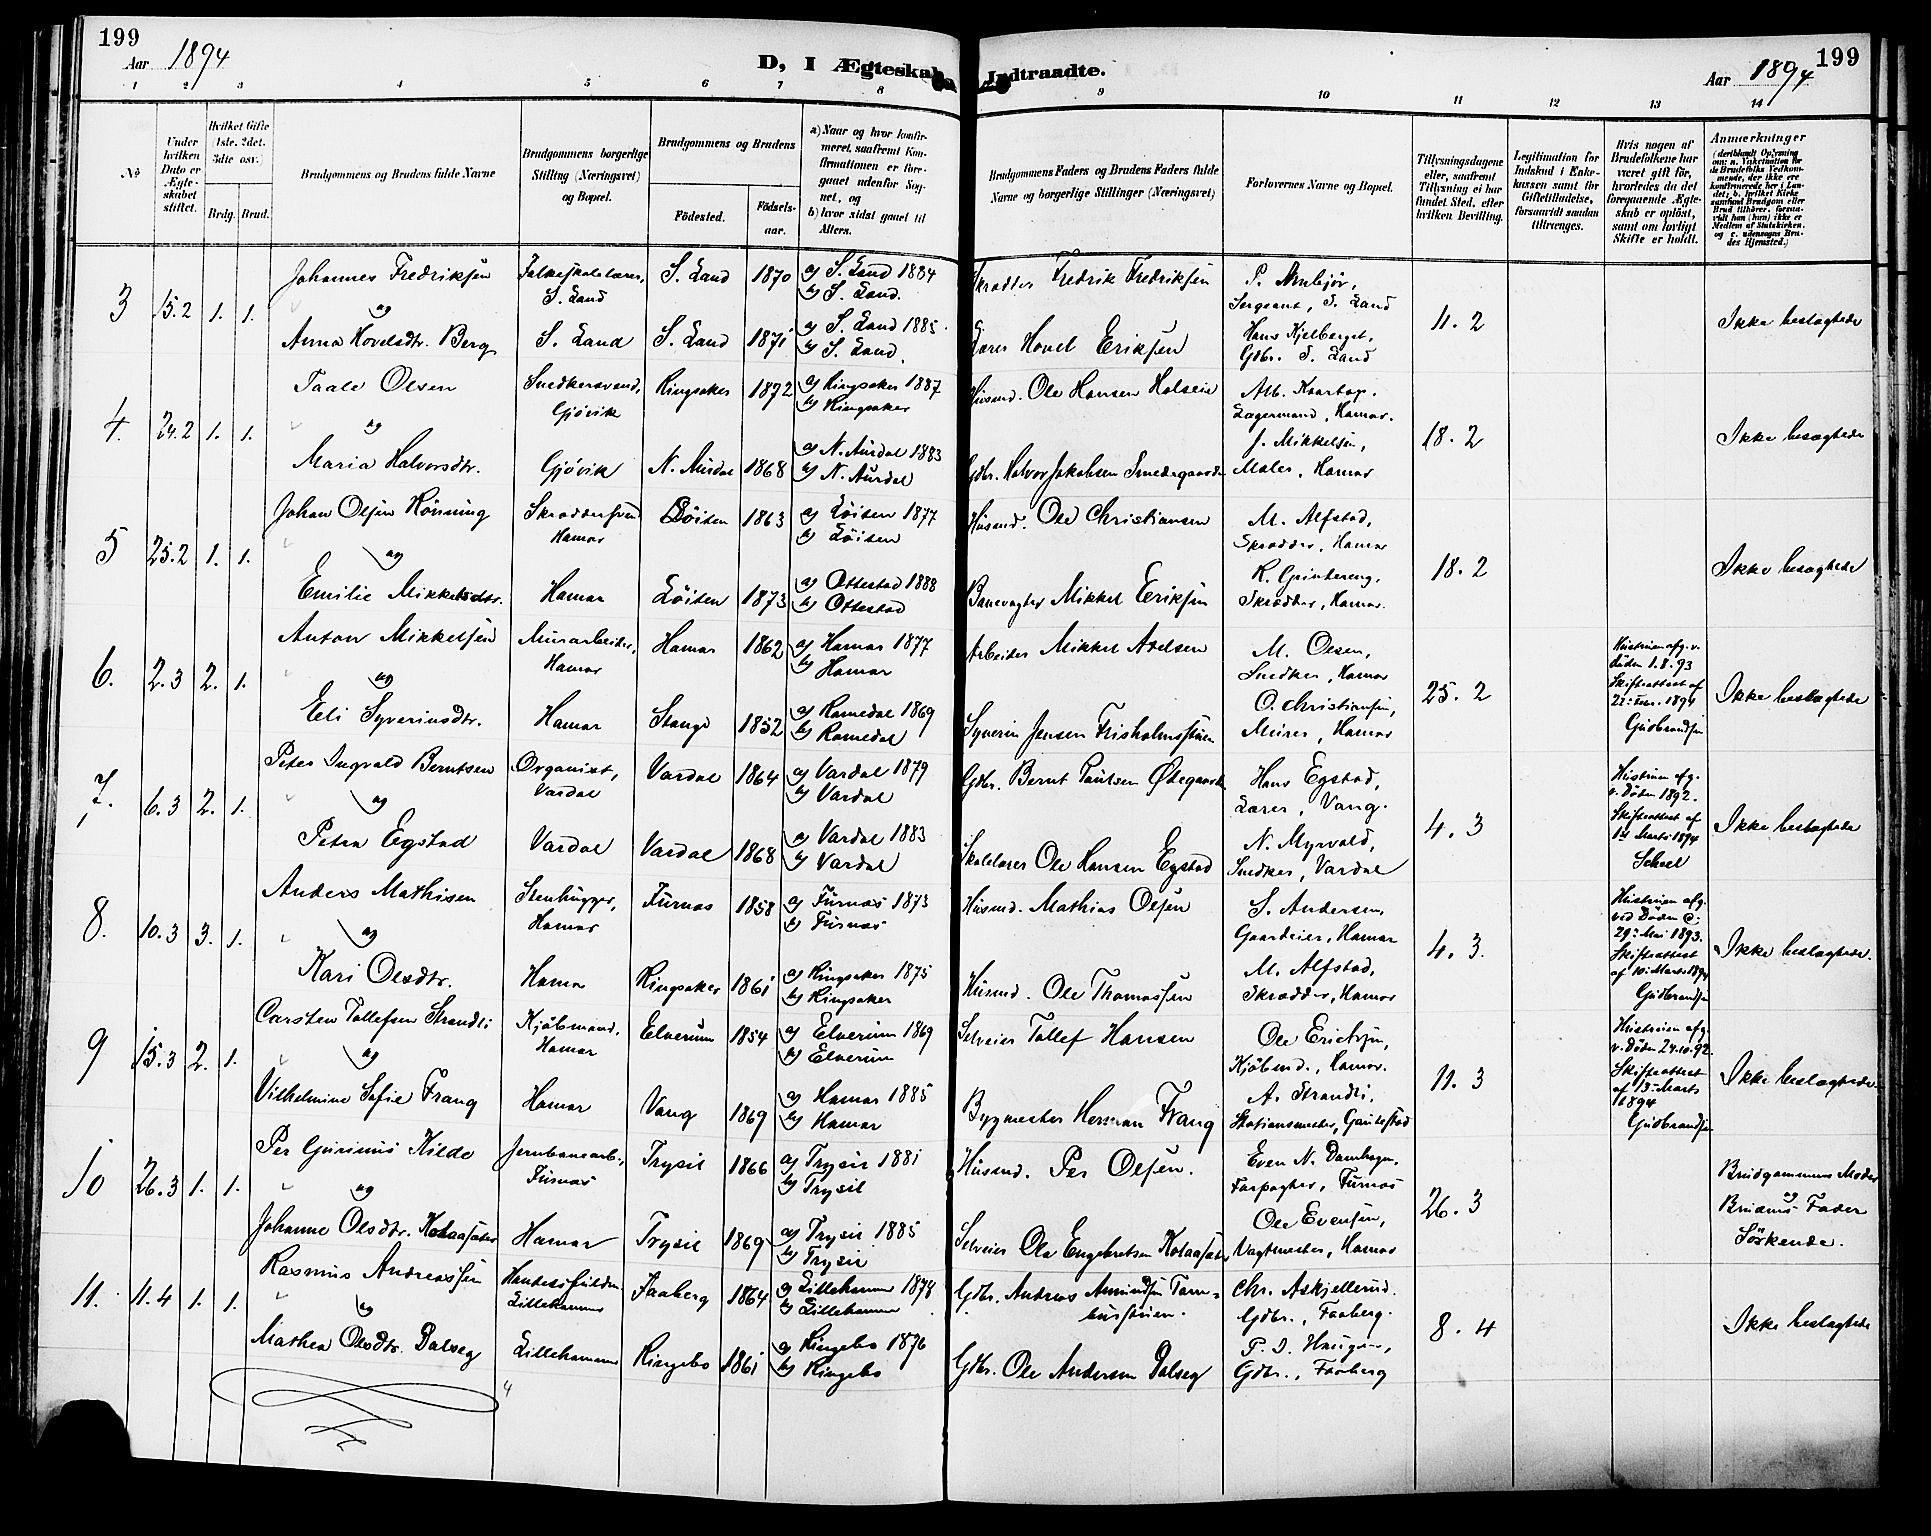 199
Aar 1894
D, I Ægteskab Indtraadte.
Aar 1894
199
1 2 3 4 5 6 7 8 9 10 11 12 13 14
No
Under hvilken Dato er Ægteskabet stiftet.
Hvilket Gifte (1ste, 2det, 3die osv.)
Brdg. Brud.
Brudgommens og Brudens fulde Navne
Brudgommens borgerlige Stilling (Næringsvei) og Bopæl.
Brudgommens og Brudens
Födested.
Födselsaar.
a) Naar og hvor konfirmeret, saafremt Konfirmationen er foregaaet udenfor Sognet, og
b) hvor sidst gaaet til Alters.
Brudgommens Faders og Brudens Faders fulde Navne og borgerlige Stillinger (Næringsvei)
Forlovernes Navne og Bopæl.
Tillysningsdagene eller, saafremt Tillysning ei har fundet Sted, efter hvilken Bevilling.
Legitimation for Indskud i Enkekassen samt for Giftetilladelse, forsaavidt saadan tiltrænges.
Hvis nogen af Brudefolkene har været gift før, hvorledes da det foregaaende Ægteskab er opløst, samt om lovligt Skifte er holdt.
Anmærkninger
3 15.2 1. 1.
Johannes Fredriksen
og
Anna Hovelsdtr. Berg
S. Land
S. Land
S. Land 1870
S. Land 1871
a) S. Land 1884
b) S. Land.
a) S. Land 1885.
b) S. Land.
Fredrik Fredriksen
Hovel Eriksen
Sergeant, S. Land
Hans Kjelberget,
Gdbr. S. Land
11. 2
Ikke beslægtede
4. 24.2 1. 1.
Paale Olsen
og
Maria Halvorsdtr.
Snedkersvend,
Gjøvik
Gjøvik
Ringsaker 1872
N. Aurdal 1868
a) Ringsaker 1887
b) Ringsaker
a) N. Aurdal 1883
b) N. Aurdal
Husmd. Ole Hansen
Gdbr. Halvor Jakobsen
Lagermand, Hamar.
J. Mikkelsen,
Maler, Hamar
18. 2
Ikke beslægtede
5 25.2 1. 1.
Johan Olsen Hönning
og
Emilie Mikkelsdtr.
Skræddersvend
Hamar
Hamar
Löiten 1863
Löiten 1873
a) Löiten 1877
b) Löiten
a) Ottestad 1888
b) Ottestad
Husmd. Ole Christiansen
Banevogter Mikkel Eriksen
M. Alfstad,
Skrædder, Hamar
K. Grindereng,
Skrædder, Hamar.
18. 2
Ikke beslægtede
6. 2.3 2. 1.
Anton Mikkelsen
og
Eli Syverinsdtr.
Murarbeider,
Hamar
Hamar
Hamar 1862
Stange 1852
a) Hamar 1877
b) Hamar
a) Romedal 1869
b) Romedal
Arbeider Mikkel Axelsen
Syverin Jensen
M. Olsen,
Snedker, Hamar
O. Christiansen,
Murer, Hamar
25. 2
Hustruen afg. v.
Döden 1.8.93
Skifteattest af
22. Febr. 1894
Gudbrandsen
Ikke beslægtede
7. 6.3 2. 1.
Peter Ingvald Berntsen
og
Petra Egstad
Organist,
Vardal
Vardal
Vardal 1864
Vardal 1868
a) Vardal 1879
b) Vardal
a) Vardal 1883
b) Vardal
Gdbr. Bernt Paulsen Ødegaard
Skolelærer Ole Hansen Egstad
Hans Egstad,
Lærer, Vang.
N. Myrvold,
Snedker, Vardal
4. 3
Hustruen afg.
v. Döden 1892.
Skifteattest af
1ste Marts 1894
Scheel
Ikke beslægtede
8. 10.3 3. 1.
Anders Mathisen
og
Kari Olsdtr.
Stenhugger,
Hamar
Hamar
Furnæs 1858
Ringsaker 1861
a) Furnæs 1873
b) Furnæs
a) Ringsaker 1875
b) Ringsaker
Husmd. Mathias Olsen
Husmd. Ole Thomassen
S. Andersen,
Gaardeier, Hamar
M. Alfstad,
Skrædder, Hamar
4. 3.
Hustruen afg.
ved Döden d.
29. Mai 1893.
Skifteattest
af 10. Marts 1894
Gudbrandsen
Ikke beslægtede.
9 15.3 2. 1.
Carsten Tollefsen Strandli
og
Vilhelmine Sofie Frang
Kjøbmand,
Hamar
Hamar
Elverum 1854
Vang 1869
a) Elverum 1869
b) Elverum
a) Hamar 1885
b) Hamar
Selveier Tollef Hansen
Bygmester Herman Frang
Ole Ericksen,
Kjøbmd., Hamar.
A. Strandli,
Stationsmester,
11. 3
Hustruen afg.
v. Döden 24.10.92.
Skifteattest
af 13. Marts
1894
Gudbrandsen
Ikke beslægtede.
10 26.3 1. 1.
Per Gurinius Kilde
og
Johanne Olsdtr. Kolaasæter
Jernbanearb.,
Furnæs
Hamar
Trysil 1866
Trysil 1869
a) Trysil 1881
b) Trysil
a) Trysil 1885
b) Trysil
Husmd. Per Olsen.
Selveier Ole Engebretsen Kolaasæter
Even N. Damhagen,
Forpagter, Furnæs
Ole Evensen,
Vagtmester, Hamar
26. 3
Brudgommens Moder
og
Brudens Fader
Söskende.
11. 11.4 1. 1.
Rasmus Andreassen
og
Mathea Olsdtr. Dalseg
Lillehammer
Lillehammer
Faaberg 1864
Ringebo 1861
a) Lillehammer 1878
b) Lillehammer
a) Ringebo 1876
b) Ringebo
Gdbr. Andreas Amundsen
Gdbr. Ole Andersen Dalseg
Chr. Askjellerud.
Gdbr., Faaberg.
P. J. Haugen,
Gdbr., Faaberg
8. 4
Ikke beslægtede